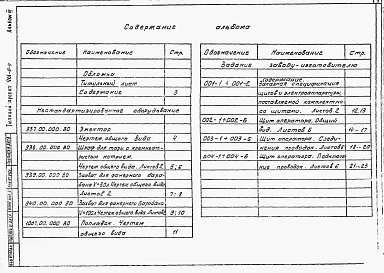 Содержание альбома
Обозначение Наименование Стр.
Обложка
Титульный лист
Содержание 3
Нестандартизированное оборудование
937.00.000.ВО Эжектор
Чертеж общего вида 4
938.00.000.ВО Шкаф для тары с хранением
Чертеж общего вида. Листов 2 5;6
939.00.000.ВО Захват для фанерного бара-
бана V=50л Чертеж общего вида
Листов 2 7;8
940.00.000.ВО Захват для фанерного барабана
V=100л Чертеж общего вида. Листов 2 9;10
1057.00.000.ВО Поплавок. Чертеж
общего вида 11
Обозначение Наименование Стр.
Задание заводу-изготовителю
001-1 ÷ 001-2 Содержание.
Заказная спецификация
щитов и электроаппаратуры,
поставляемой комплектно
со щитами. Листов 2 12,13
002-1 ÷ 002-6 Щит оператора. Общий
вид. Листов 6 14-17
003-1 ÷ 003-6 Щит оператора. Соеди-
нения проводок. Листов 6 18-20
004-1 ÷ 004-6 Щит оператора. Подключе-
ния проводок. Листов 6 21-23
Альбом
Типовой проект